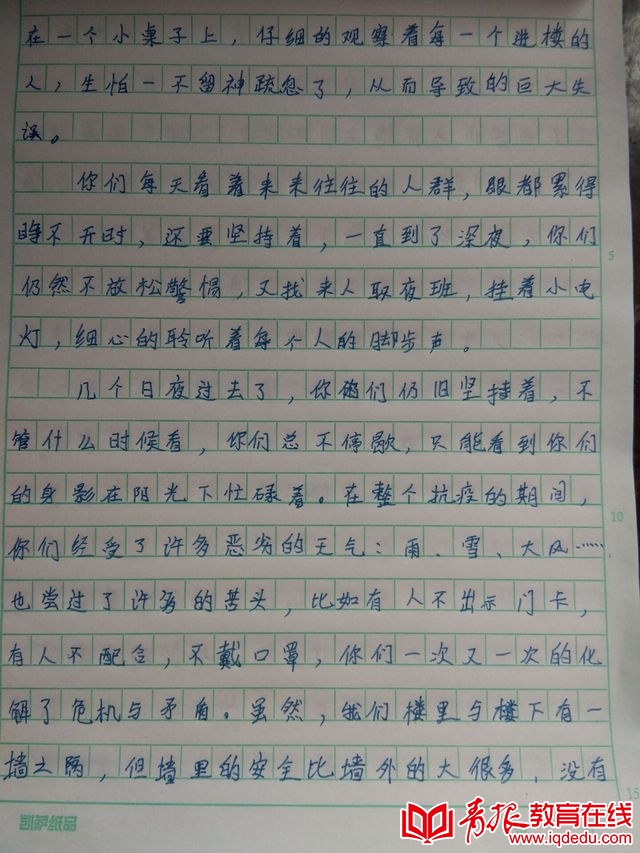 在一个小桌子上，仔细的观察着每一个进楼的
人，生怕一不留神疏忽了，从而导致的巨大失
误。
你们每天看着来来往往的人群，眼都累得
睁不开时，还要坚持着，一直到了深夜，你们
仍然不放松警惕，又找来人取夜班，挂着小电
灯，细心的聆听着每个人的脚步声。
几个日夜过去了，你们仍旧坚持着，不
管什么时候看，你们总不停歇，只能看到你们
的身影在阳光下忙碌着。在整个抗疫的期间，
你们经受了许多恶劣的天气：雨、雪、大风……
也尝过了许多的苦头，比如有人不出示门卡，
有人不配合，不戴口罩，你们一次又一次的化
解了危机与矛盾。虽然，我们楼里与楼下有一
墙之隔，但墙里的安全比墙外的大很多，没有
5
10
15
凯萨纸品
青报教育在线
www.iqdedu.com